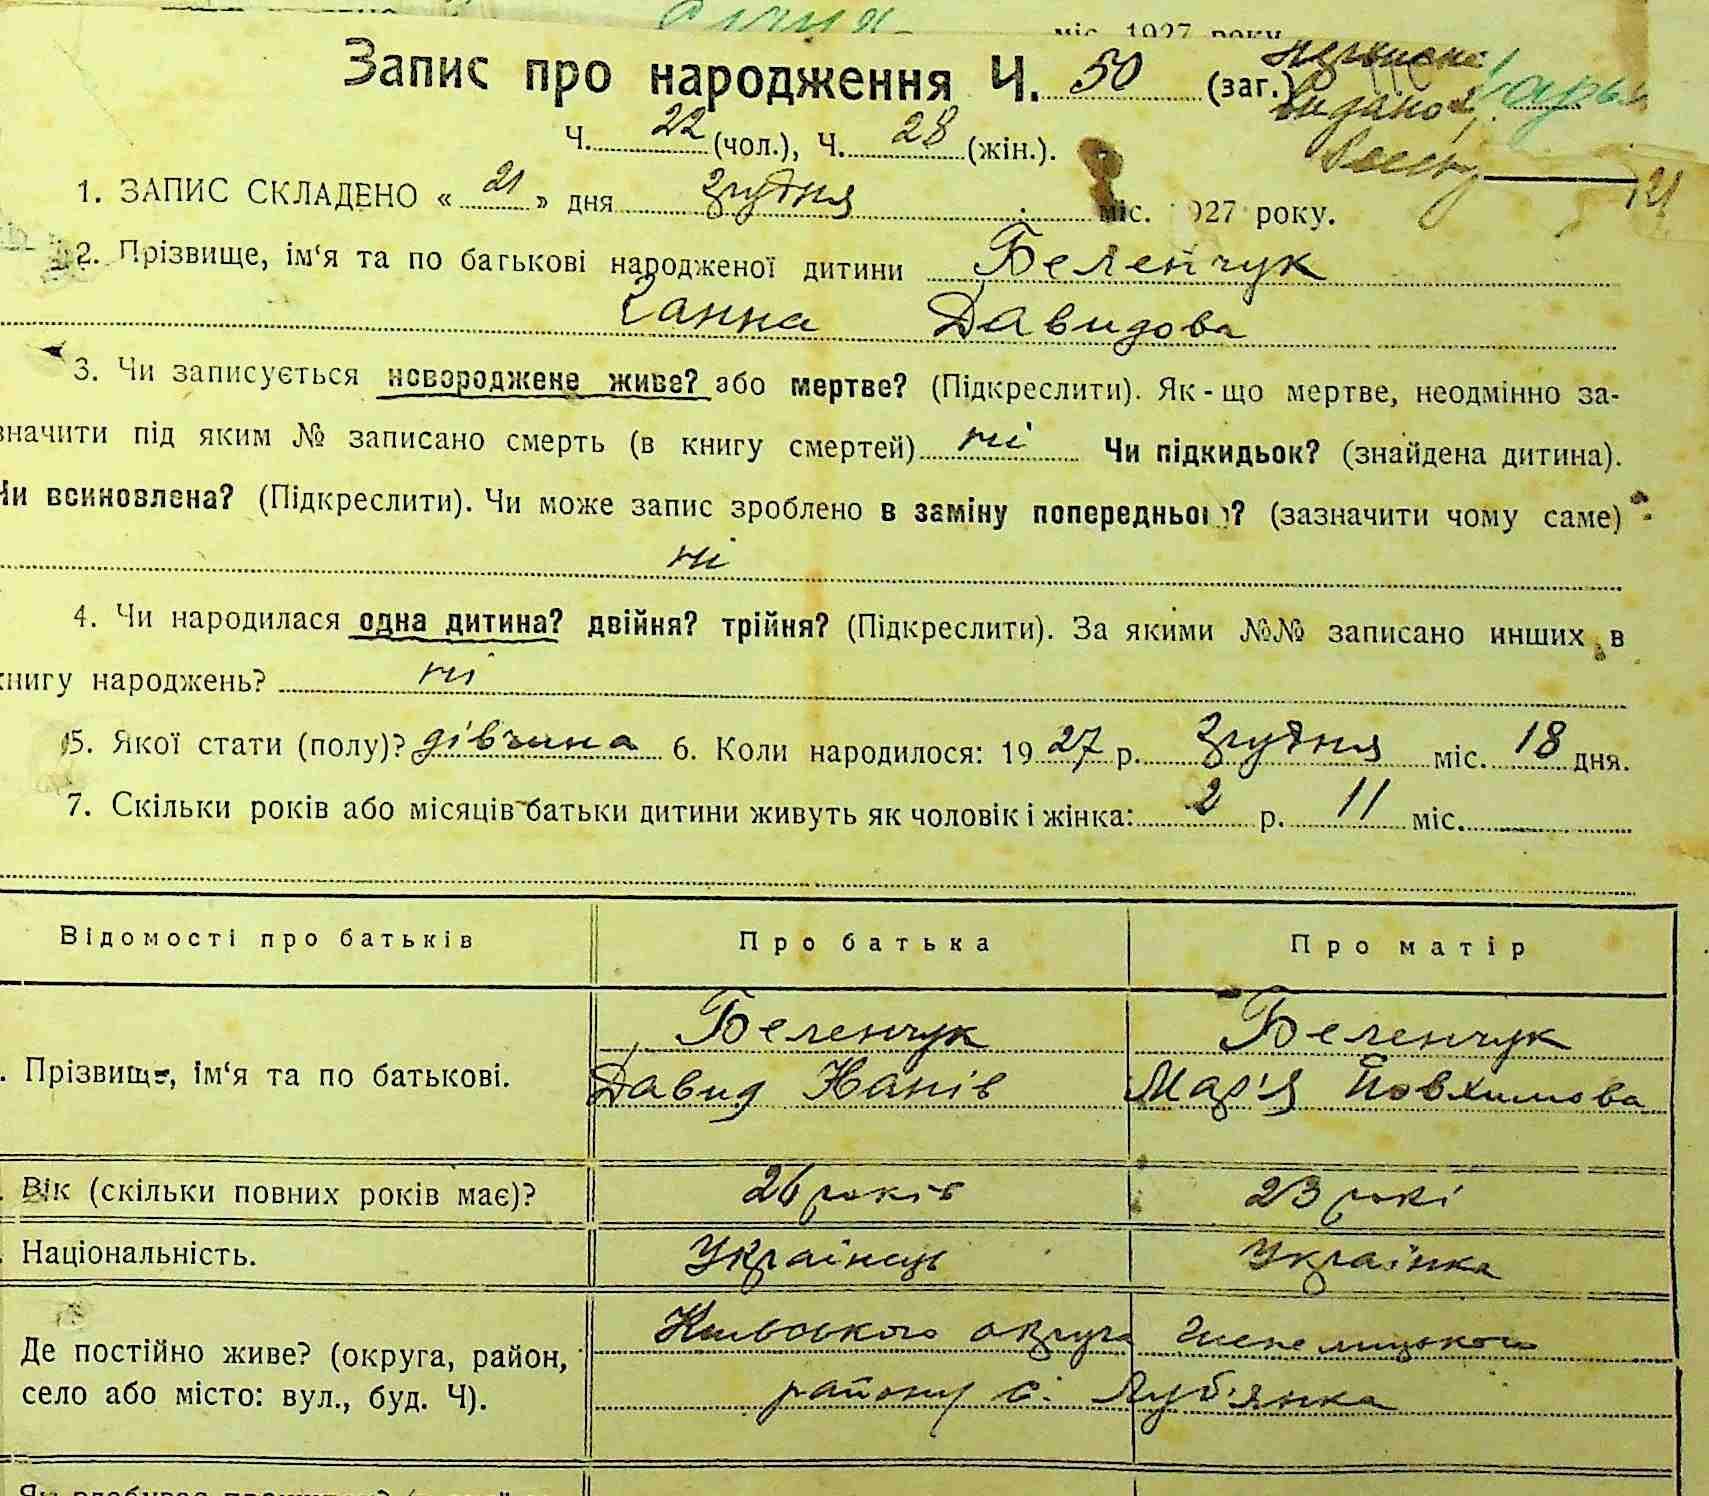 міс. 1927 року
Запис про народження Ч. 50 (заг.)
Ч. 22 (чол.), Ч. 28 (жін.).
видано
1. ЗАПИС СКЛАДЕНО « 21 » дня грудня міс. 1927 року.
2. Прізвище, ім‘я та по батькові народженої дитини Беленчук
Ганна Давидова
3. Чи записується новороджене живе? або мертве? (Підкреслити). Як-що мертве, неодмінно за-
значити під яким № записано смерть (в книгу смертей) ні Чи підкидьок? (знайдена дитина).
Чи всиновлена? (Підкреслити). Чи може запис зроблено в заміну попереднього? (зазначити чому саме)
ні
4. Чи народилася одна дитина? двійня? трійня? (Підкреслити). За якими №№ записано инших в
книгу народжень? ні
5. Якої стати (полу)? дівчина 6. Коли народилося: 19 27 р. грудня міс. 18 дня.
7. Скільки років або місяців батьки дитини живуть як чоловік і жінка: 2 р. 11 міс.
Відомості про батьків Про батька Про матір
Беленчук Беленчук
. Прізвище, ім‘я та по батькові. Давид Мар'я Йовхимова
. Вік (скільки повних років має)? 26 років 23 рокі
. Національність. Украінець Украінка
Де постійно живе? (округа, район, село або місто: вул., буд. Ч).
округа
району с. Луб'янка